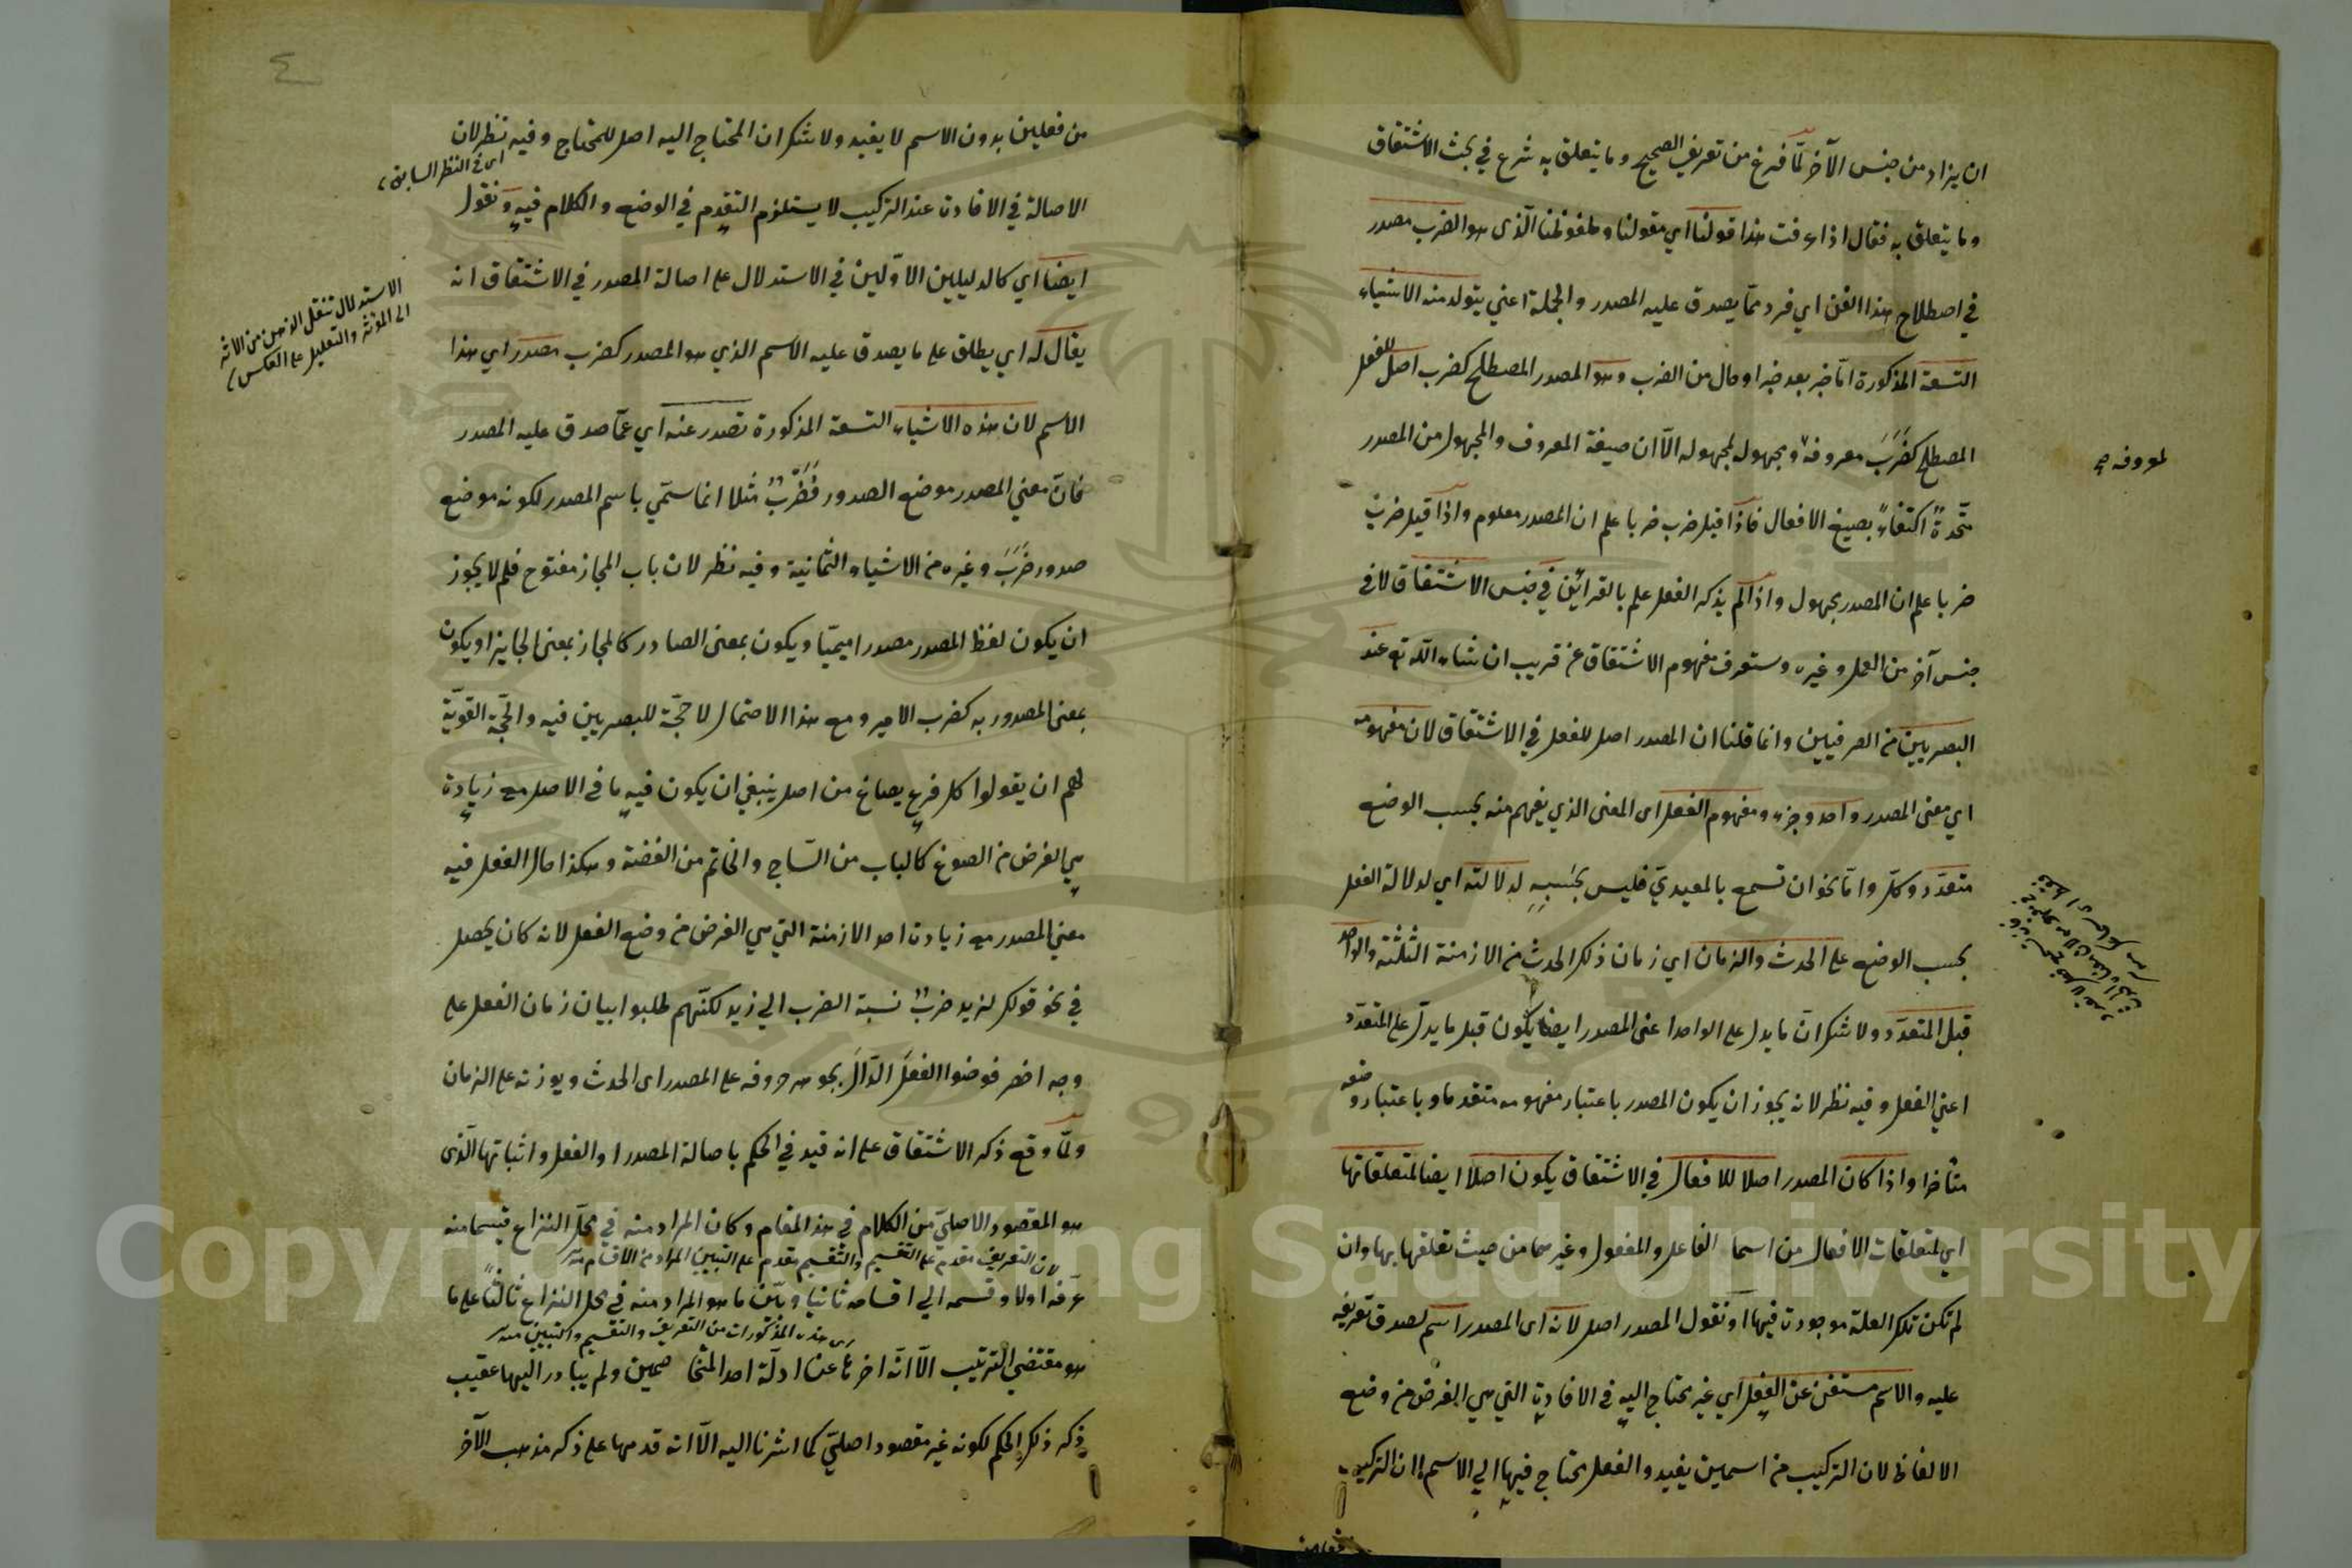 ان يزاد من جنس الآخر لمّا فرغ من تعريف الصحيح وما يتعلق به شرع في بحث الاشتقاق
وما يتعلق به فقال اذا عرفت هذا قولنا اي مقولنا وملفوظنا الّذى هو الضرب مصدر
في اصطلاح هذا الفن اي فرد ممّا يصدق عليه المصدر والجملة اعني يتولد منه الاشياء
التسعة المذكورة امّا خبر بعد خبر او حال من الضرب وهو المصدر المصطلح كضرب اصل للفعل
المصطلح كضَرَبَ معروفه ومجهول لمجهوله الّا ان صيغة المعروف والمجهول من المصدر
لمعروفه صح
متّحدةٌ اكتفاءً بصيغ الافعال فاذا قيل ضرب ضربا علم ان المصدر معلوم واذا قيل ضرب
ضربا علم ان المصدر مجهول واذا لم يذكر الفعل علم بالقرائن في جنس الاشتقاق لا في
جنس آخر من العمل وغيره وستعرف مفهوم الاشتقاق عن قريب ان شاء الله تع عند
البصريين من الصرفيين وانما قلنا ان المصدر اصل للفعل في الاشتقاق لان مفهومه
اي معنى المصدر واحد وجزء ومفهوم الفعل اى المعنى الذي يفهم منه بحسب الوضع
متعدّد وكلّ وامّا نحو ان تسمع بالمعيديّ فليس بحَسَبِهِ لدلالته اي لدلالة الفعل
بحسب الوضع على الحدث والزمان اي زمان ذلك الحدث من الازمنة الثلثة والواحد
قبل المتعدّد ولا شك انّ ما يدل على الواحد اعنى المصدر ايضا يكون قبل ما يدلّ على المتعدّد
اعني الفعل وفيه نظر لانه يجوز ان يكون المصدر باعتبار مفهومه متقدما وباعتبار وضعه
متأخرا واذا كان المصدر اصلا للافعال في الاشتقاق يكون اصلًا ايضا لمتعلقاتها
اي لمتعلقات الافعال من اسماء الفاعل والمفعول وغيرهما من حيث تعلقها بها وان
لم تكن تلك العلة موجودة فيها او نقول المصدر اصل لانه اى المصدر اسم لصدق تعريفه
عليه والاسم مستغن عن الفعل اي غير محتاج اليه في الافادة التي هي الغرض من وضع
الالفاظ لان التركيب من اسمين يفيد والفعل محتاج فيها الي الاسم لان التركيب
من فعلين
٤
من فعلين بدون الاسم لا يفيد ولا شك ان المحتاج اليه اصل للمحتاج وفيه نظر لان
اى في النظر السابق
الاصالة في الافادة عند التركيب لا يستلزم التقدم في الوضع والكلام فيه ونقول
ايضا اي كالدليلين الاوّلين في الاستدلال على اصالة المصدر في الاشتقاق انه
الاستدلال تنقل الذهن من الاثر
الى المؤثر والتعليل على العكس
يقال له اي يطلق على ما يصدق عليه الاسم الذي هو المصدر كضرب مصدر اي هذا
الاسم لان هذه الاشياء التسعة المذكورة تصدر عنه اي عمّا صدق عليه المصدر
فانّ معني المصدر موضع الصدور فضَرْبٌ مثلا انما سمّي باسم المصدر لكونه موضع
صدور ضَرَبَ وغيره من الاشياء الثمانية وفيه نظر لان باب المجاز مفتوح فلم لا يجوز
ان يكون لفظ المصدر مصدرا ميميّا ويكون بمعنى الصادر كالمجاز بمعنى الجايز او يكون
بمعنى المصدور به كضرب الامير ومع هذا الاحتمال لا حجّة للبصريين فيه والحجّة القويّة
لهم ان يقولوا كل فرع يصاغ من اصل ينبغي ان يكون فيه ما في الاصل مع زيادة
هي الغرض من الصوغ كالباب من السّاج والخاتم من الفضة وهكذا حال الفعل فيه
معني المصدر مع زيادة احد الازمنة التي هي الغرض من وضع الفعل لانه كان يحصل
في نحو قولك لزيد ضربٌ نسبة الضرب الي زيد لكنّهم طلبوا بيان زمان الفعل على
وجه اخصر فوضعوا الفعلَ الدّالَّ بجوهر حروفه على المصدر اى الحدث وبوزنه على الزمان
ولمّا وقع ذكر الاشتقاق على انه قيد في الحكم باصالة المصدر او الفعل واثباتها الّذى
هو المقصود الاصليّ من الكلام في هذا المقام وكان المراد منه في محلّ النزاع قسما منه
لان التعريف مقدم على التقسيم والتقسيم مقدم على التبيين المراد من الاقسام منه
عرّفه اولا وقسمه الي اقسامه ثانيا وبيّن ما هو المراد منه في محل النزاع ثالثًا على ما
اى هذه المذكورات من التعريف والتقسيم والتبيين منه
هو مقتضي الترتيب الّا انّه اخرها عن ادلّة احد المتخاصمين ولم يبادر اليها عقيب
ذكر ذلك الحكم لكونه غير مقصود اصليّ كما اشرنا اليه الّا انه قدمها على ذكر مذهب الآخر
Copyright © King Saud University
1957